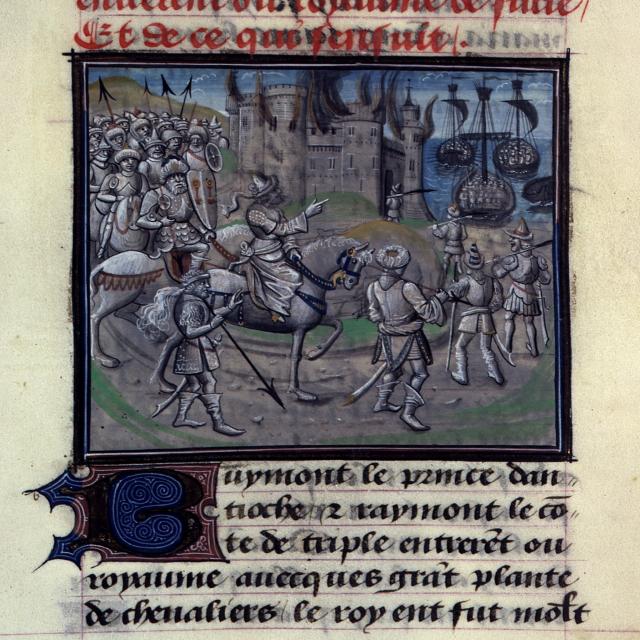 entrerent ou royaume de surie
Et de ce qui sensuit.
Buymont le prince dan-
tioche ⁊ raymont le cō-
te de triple entrerēt ou
royaume auecques grāt plante
de cheualiers le roy ent fut molt